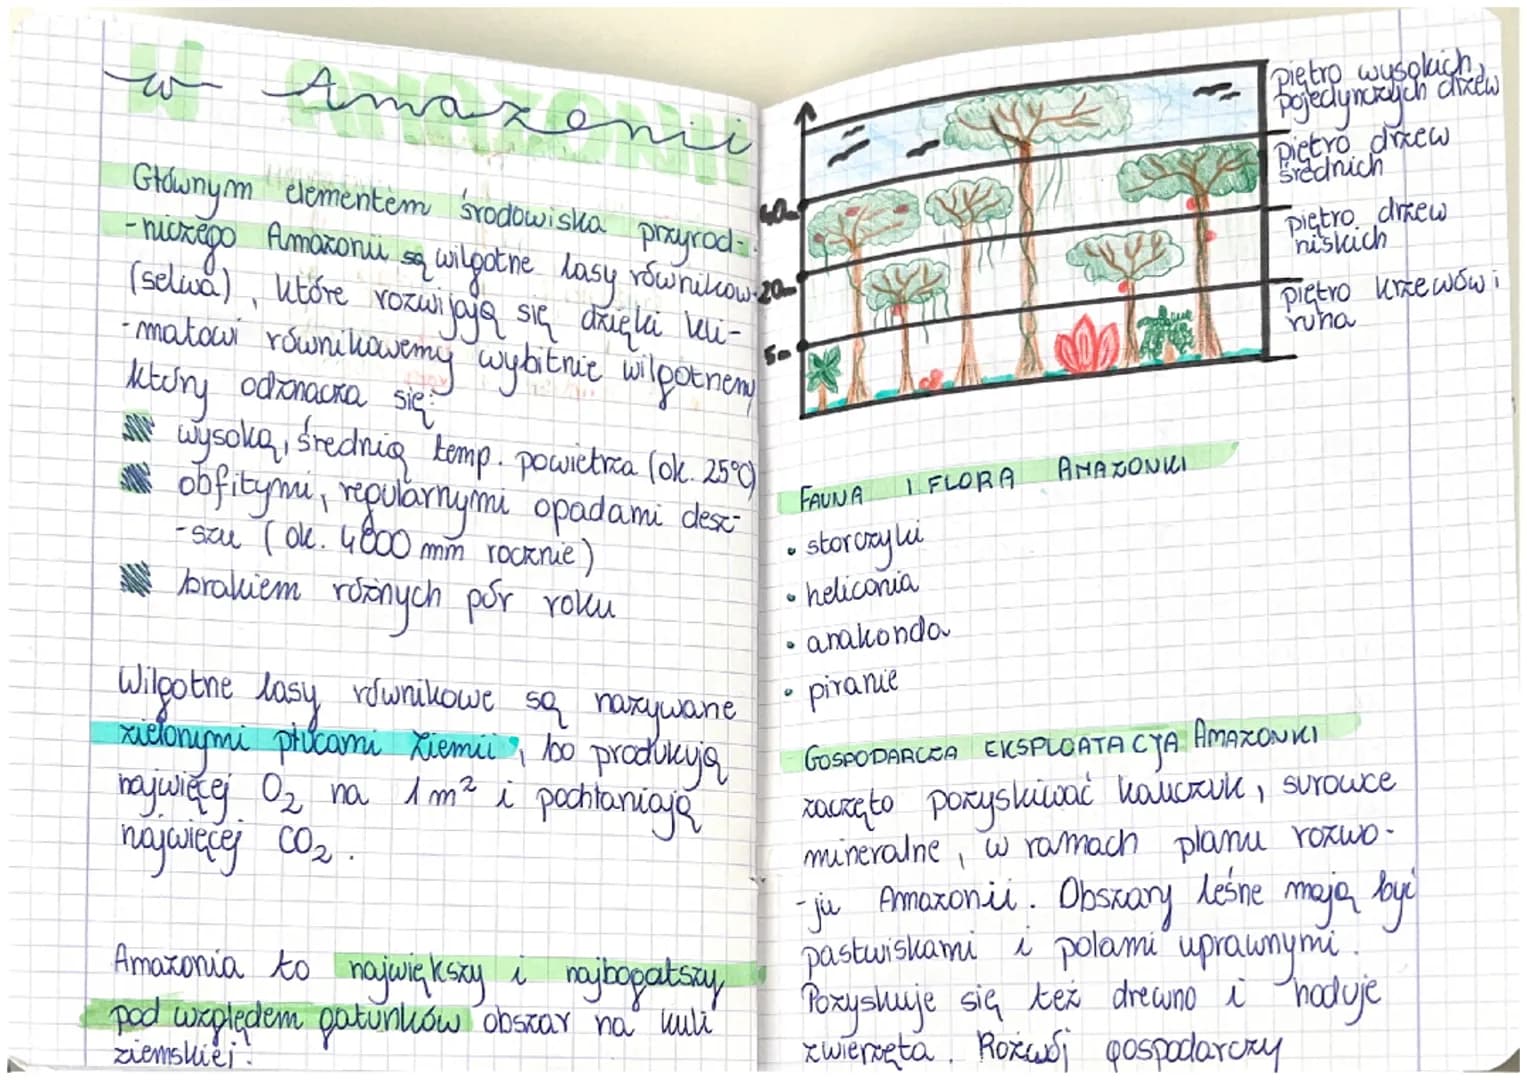 W AMAZONII
w Amazonii
Głównym elementem środowiska przyrod-
-niczego Amazonii są wilgotne lasy równikow.
(selwa), które rozwijają się dzięki kli-
-matowi równikowemu wybitnie wilgotnemu
który odznacza się:
wysoką, średnią temp. powietrza (ok. 25°C)
obfitymi, regularnymi opadami desz-
-szu (ok. 4000 mm rocznie)
brakiem różnych pór roku
Wilgotne lasy równikowe są nazywane
zielonymi płucami Ziemii, bo produkują
najwięcej O2 na 1m² i pochłaniają
najwięcej CO2.
Amazonia to największy i najbogatszy
pod względem gatunków obszar na kuli
ziemskiej.
piętro wysokich,
pojedynczych drzew
piętro drzew
średnich
piętro drzew
niskich
piętro krzewów i
runa
40m
20m
5m
FAUNA I FLORA AMAZONKI
• storczyki
• heliconia
• anakonda
• piranie
GOSPODARCZA EKSPLOATACJA AMAZONKI
zaczęto pozyskiwać kauczuk, surowce
mineralne, w ramach planu rozwo-
-ju Amazonii. Obszary leśne mają być
pastwiskami i polami uprawnymi.
Pozyskuje się też drewno i hoduje
zwierzęta. Rozwój gospodarczy